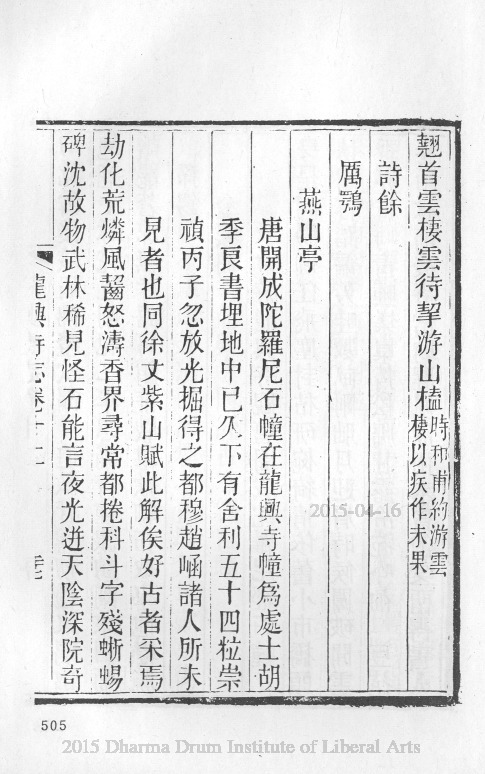 翹首雲棲雲待挐游山榼時和甫約游雲棲以疾作未果
詩餘
厲鶚
燕山亭
唐開成陀羅尼石幢在龍興寺幢爲處士胡
季良書埋地中已久下有舍利五十四粒崇
禎丙子忽放光掘得之都穆趙崡諸人所未
見者也同徐丈紫山賦此解俟好古者采焉
劫化荒燐風齧怒濤香界尋常都捲科斗字殘蜥蜴
碑沈故物武林稀見怪石能言夜光迸天陰深院奇
龍興寺志卷十二
505
2015-04-16
2015 Dharma Drum Institute of Liberal Arts